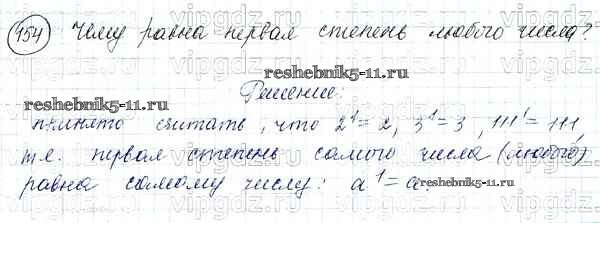 954 Чему равна первая степень любого числа?
reshebnik5-11.ru
Решение:
reshebnik5-11.ru
принято считать, что 2¹=2, 3¹=3, 111¹=111
т.е. первая степень самого числа (любого)
равна самому числу: a¹=a.
reshebnik5-11.ru